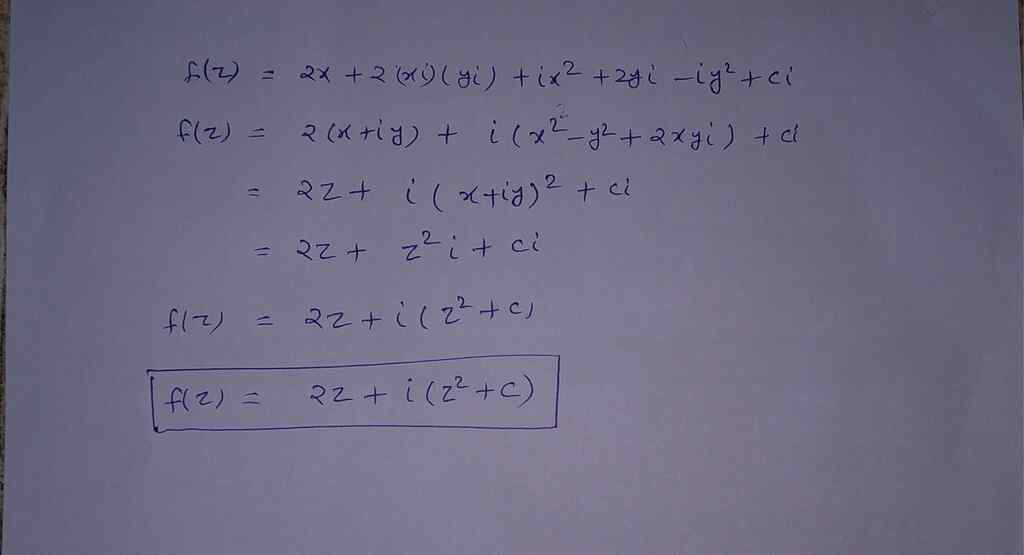 f(z) = 2x + 2(xi)(yi) + ix² + 2yi - iy² + ci
f(z) = 2(x+iy) + i(x²-y²+2xyi) + ci
= 2z + i(x+iy)² + ci
= 2z + z²i + ci
f(z) = 2z + i(z²+c)
f(z) = 2z + i(z²+c)